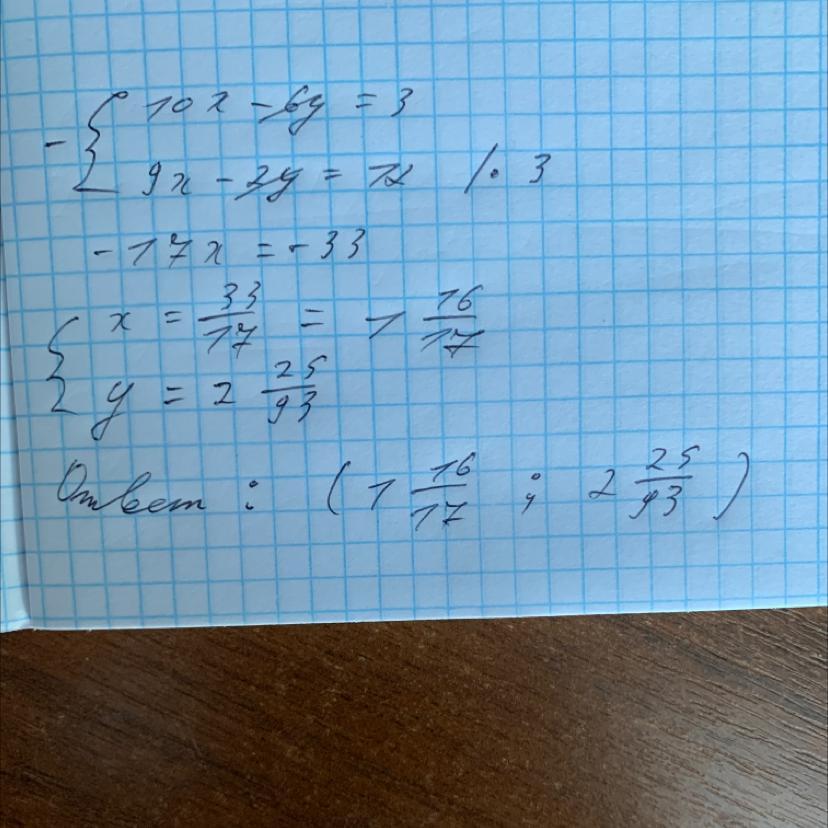 - { 10x - 6y = 3
9x - 2y = 12 /· 3
- 17x = - 33
{ x = 33/17 = 1 16/17
y = 2 25/93
Ответ : ( 1 16/17 ; 2 25/93 )